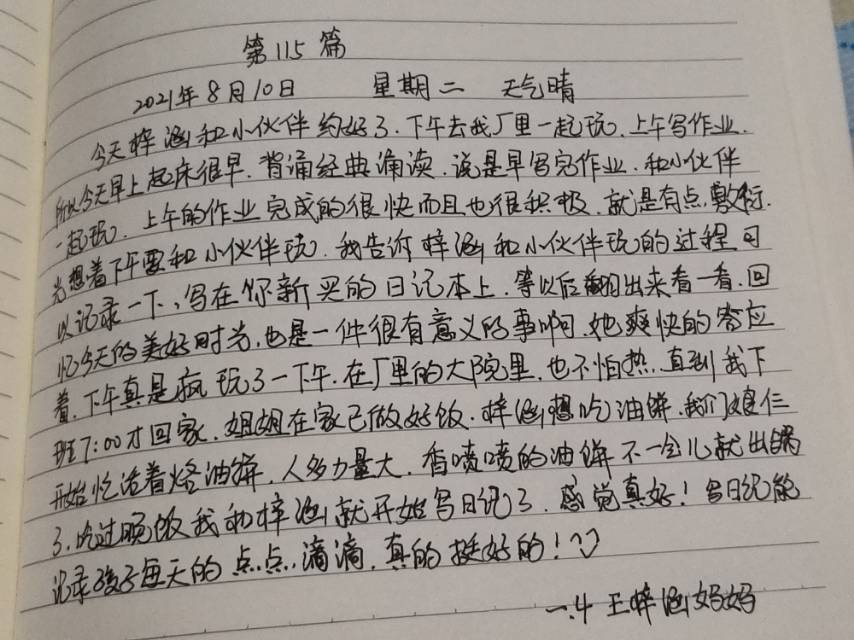 第115篇
2021年8月10日 星期二 天气晴
今天梓涵和小伙伴约好了.下午去我厂里一起玩.上午写作业.
所以今天早上起床很早.背诵经典诵读.说是早写完作业.和小伙伴
一起玩.上午的作业完成的很快而且也很积极.就是有点敷衍.
光想着下午要和小伙伴玩.我告诉梓涵和小伙伴玩的过程可
以记录一下,写在你新买的日记本上.等以后翻出来看一看.回
忆今天的美好时光.也是一件很有意义的事啊.她爽快的答应
着.下午真是疯玩了一下午.在厂里的大院里.也不怕热.直到我下
班7:00才回家.姐姐在家已做好饭.梓涵想吃油饼.我们娘仨
开始忙活着烙油饼.人多力量大.香喷喷的油饼不一会儿就出锅
了.吃过晚饭我和梓涵就开始写日记了.感觉真好!写日记能
记录孩子每天的点点滴滴.真的挺好的!
一.4 王梓涵妈妈